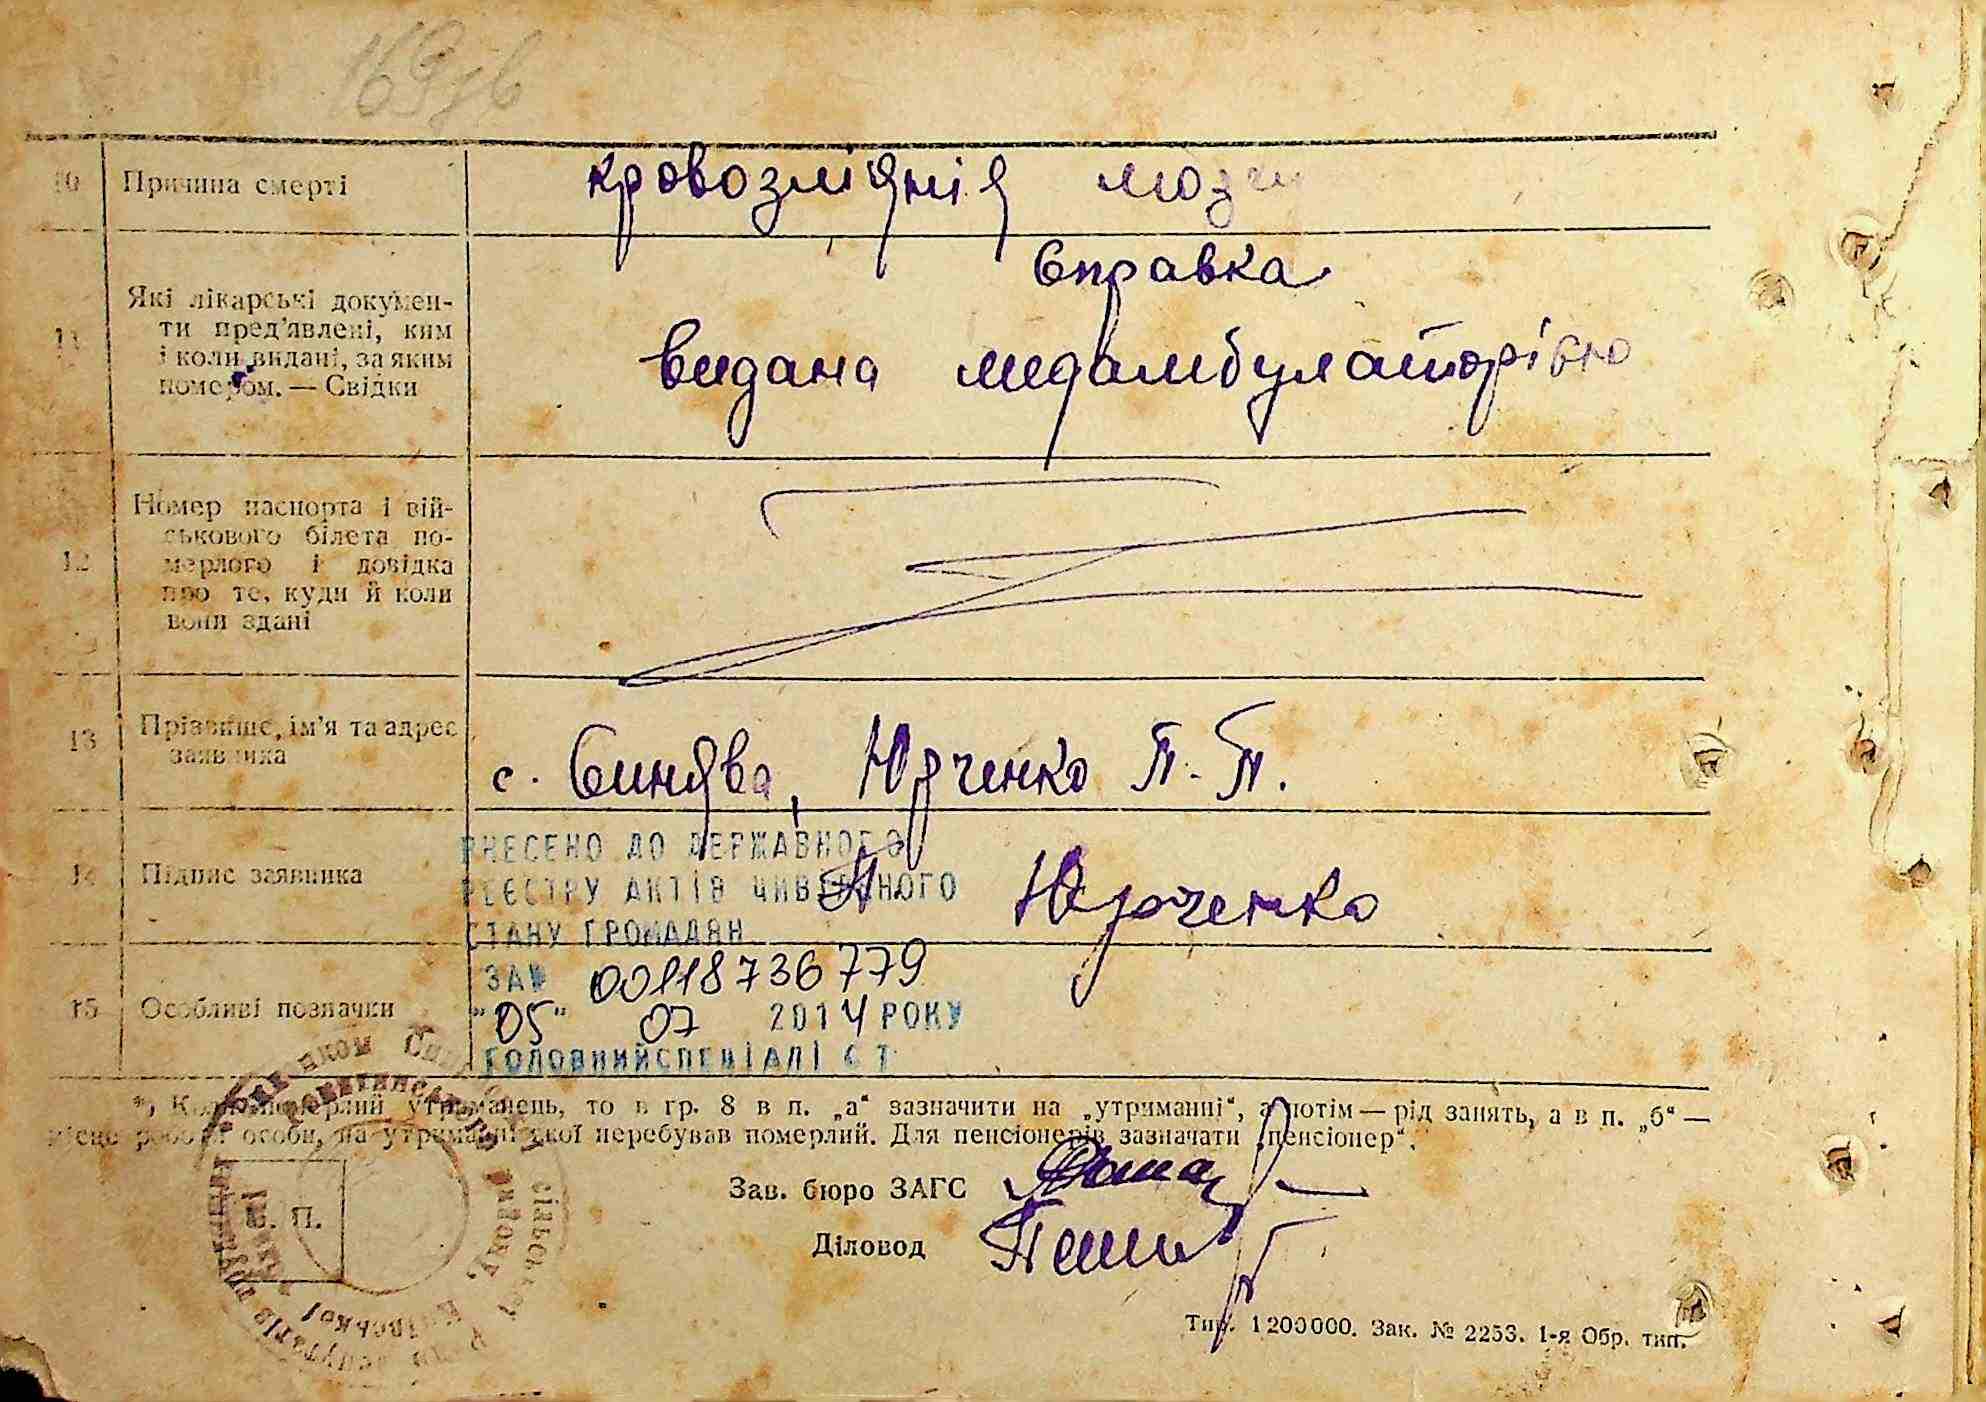 169зв
10 Причина смерті кровозліянія мозги
Справка
11 Які лікарські докумен-
ти пред'явлені, ким
і коли видані, за яким
номером. — Свідки
видана медамбулаторією
12 Номер паспорта і вій-
ськового білета по-
мерлого і довідка
про те, куди й коли
вони здані
13 Прізвище, ім'я та адрес
заявника
с. Синява, Юрченко П. П.
14 Підпис заявника
Юрченко
ВНЕСЕНО ДО ДЕРЖАВНОГО
РЕЄСТРУ АКТІВ ЦИВІЛЬНОГО
СТАНУ ГРОМАДЯН
ЗА № 00118736779
15 Особливі позначки
"05" 07 2014 РОКУ
ГОЛОВНИЙ СПЕЦІАЛІСТ
*) Коли померлий утриманець, то в гр. 8 в п. „а“ зазначити на „утриманні“, а потім — рід занять, а в п. „б“ —
місце роботи особи, на утриманні якої перебував померлий. Для пенсіонерів зазначати „пенсіонер“.
Зав. бюро ЗАГС
Діловод
М. П.
Київської
Тир. 1200000. Зак. № 2253. 1-я Обр. тип.